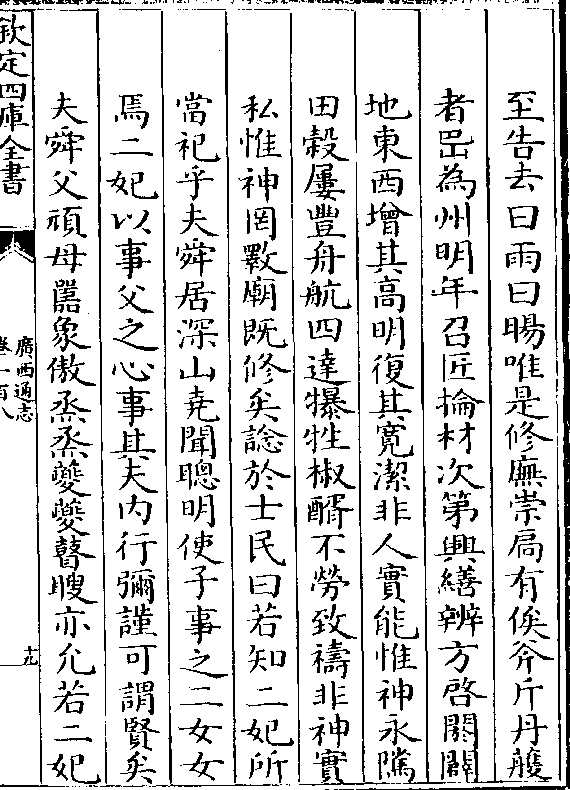 至告去曰雨曰暘唯是修廡崇扃有俟斧斤丹雘
者嵒為州明年召匠掄材次第興繕辨方啓閟闢
地東西增其高明復其寛潔非人實能惟神永隲
田榖屢豐舟航四達犦牲椒醑不勞致禱非神實
私惟神罔斁廟既修矣諗於士民曰若知二妃所
當祀乎夫舜居深山堯聞聰明使子事之二女女
焉二妃以事父之心事其夫内行彌謹可謂賢矣
夫舜父頑母嚚象傲烝烝夔夔瞽瞍亦允若二妃
欽定四庫全書
廣西通志
卷一百八
十九